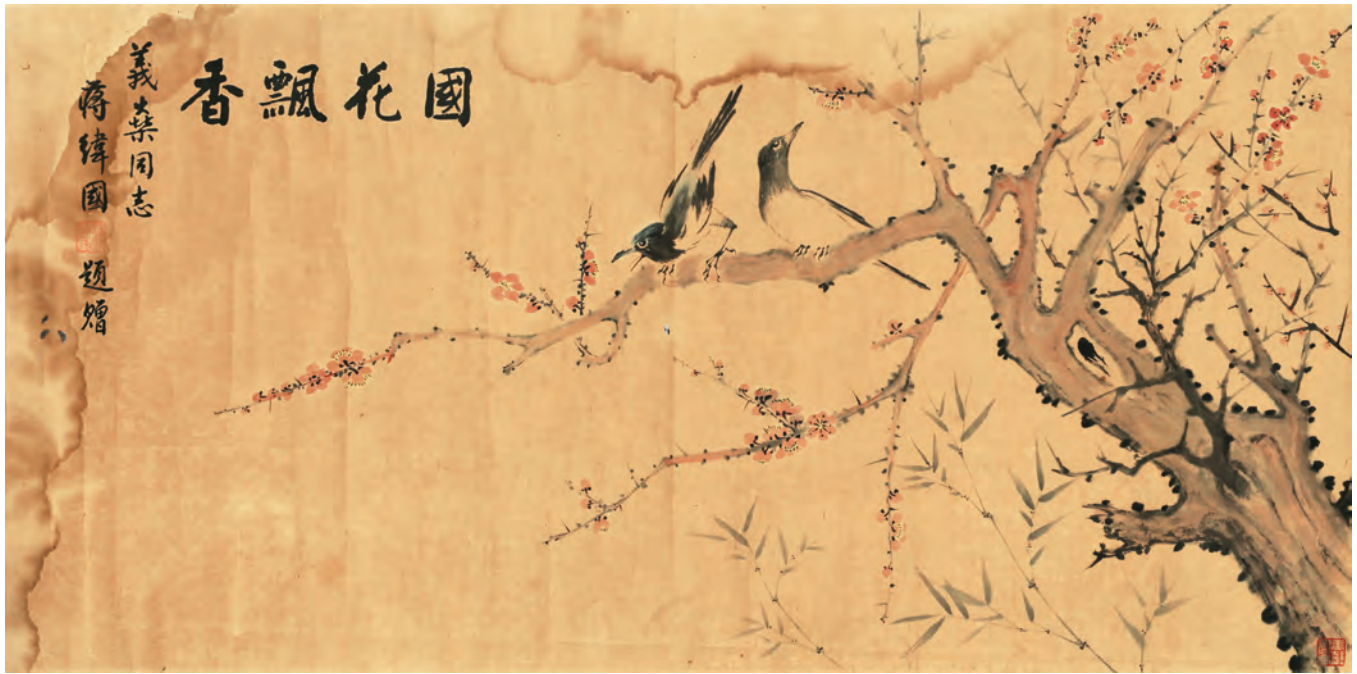 國花飄香
義燊同志
蔣緯國題贈